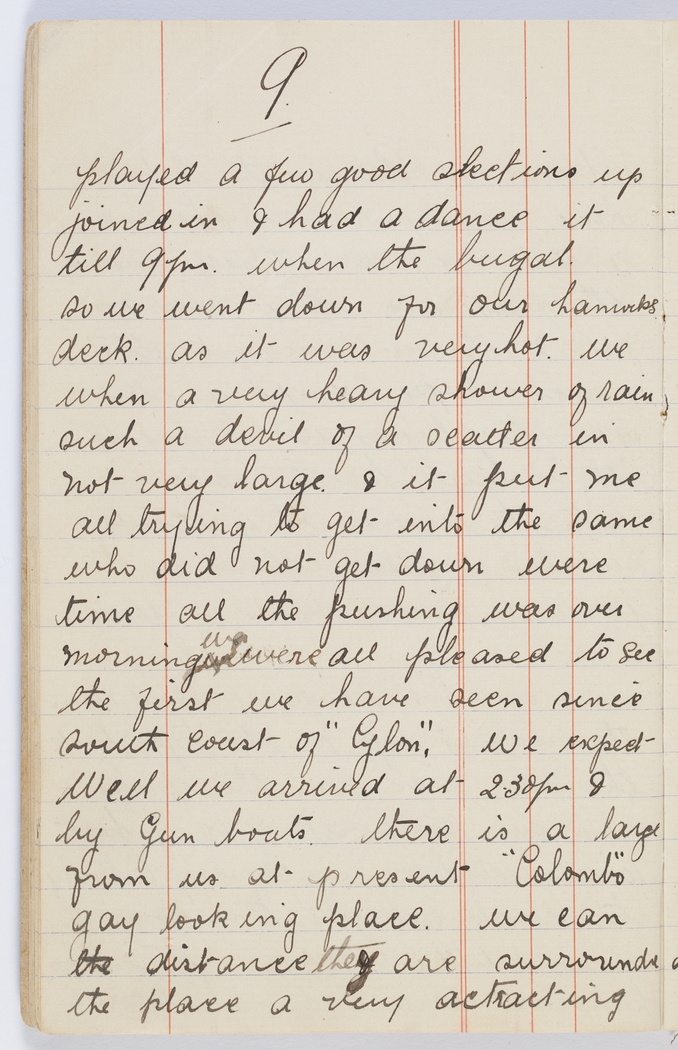 9.
played a few good slections up
joined in & had a dance it
till 9pm. when the bugal.
so we went down for our hamocks
deck. as it was very hot. we
when a very heavy shower of rain,
such a devil of a scatter in
not very large. & it put me
all trying to get into the same
who did not get down were
time all the pushing was over
morning we were all pleased to see
the first we have seen since
south coust of "Cylon", we expect
Well we arrived at 2.30pm &
by Gun boats. there is a large
from us at present "Colombo"
gay looking place. we can
the distance they are surrounded
the place a very actracting